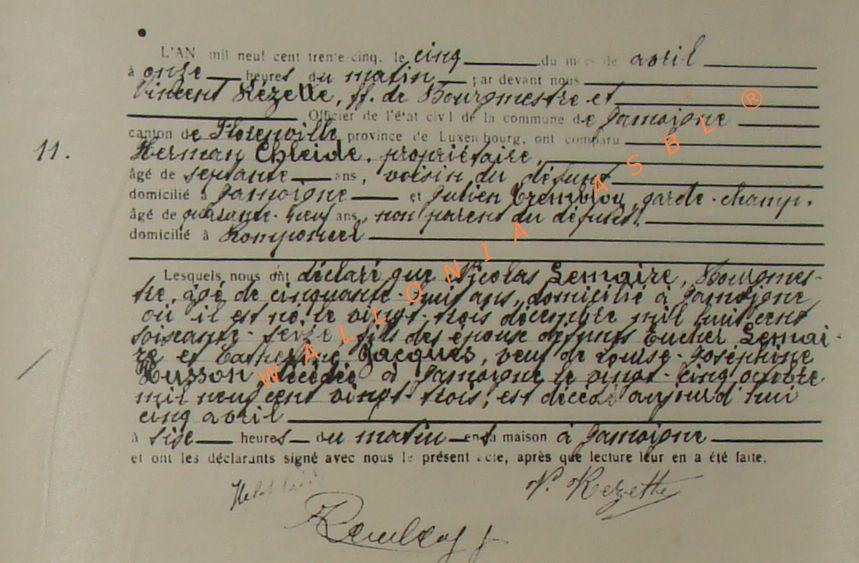 L'AN mil neuf cent trente-cinq, le cinq du mois de avril
à onze heures du matin par devant nous
Vincent Rezette, ff. de Bourgmestre et
Officier de l'état civil de la commune de Jamoigne
canton de Florenville province de Luxembourg, ont comparu
11. Herman propriétaire,
âgé de septante ans, voisin du défunt
domicilié à Jamoigne et Julien garde-champ.
âgé de quarante-neuf ans, non parent du défunt,
domicilié à Romponcel
Lesquels nous ont déclaré que Nicolas Lemaire, Bourgmes-
tre, âgé de cinquante-huit ans, domicilié à Jamoigne
où il est né le vingt-trois décembre mil huit cent
soixante-seize fils des époux défunts Eucher Lemai-
re et Catherine Jacques, veuf de Louise-Joséphine
Husson décédée à Jamoigne le vingt-cinq octobre
mil neuf cent vingt-trois, est décédé aujourd'hui
cinq avril
à six heures du matin en sa maison à Jamoigne
et ont les déclarants signé avec nous le présent acte, après que lecture leur en a été faite.
V. Rezette
WALLONIA ASBL ®